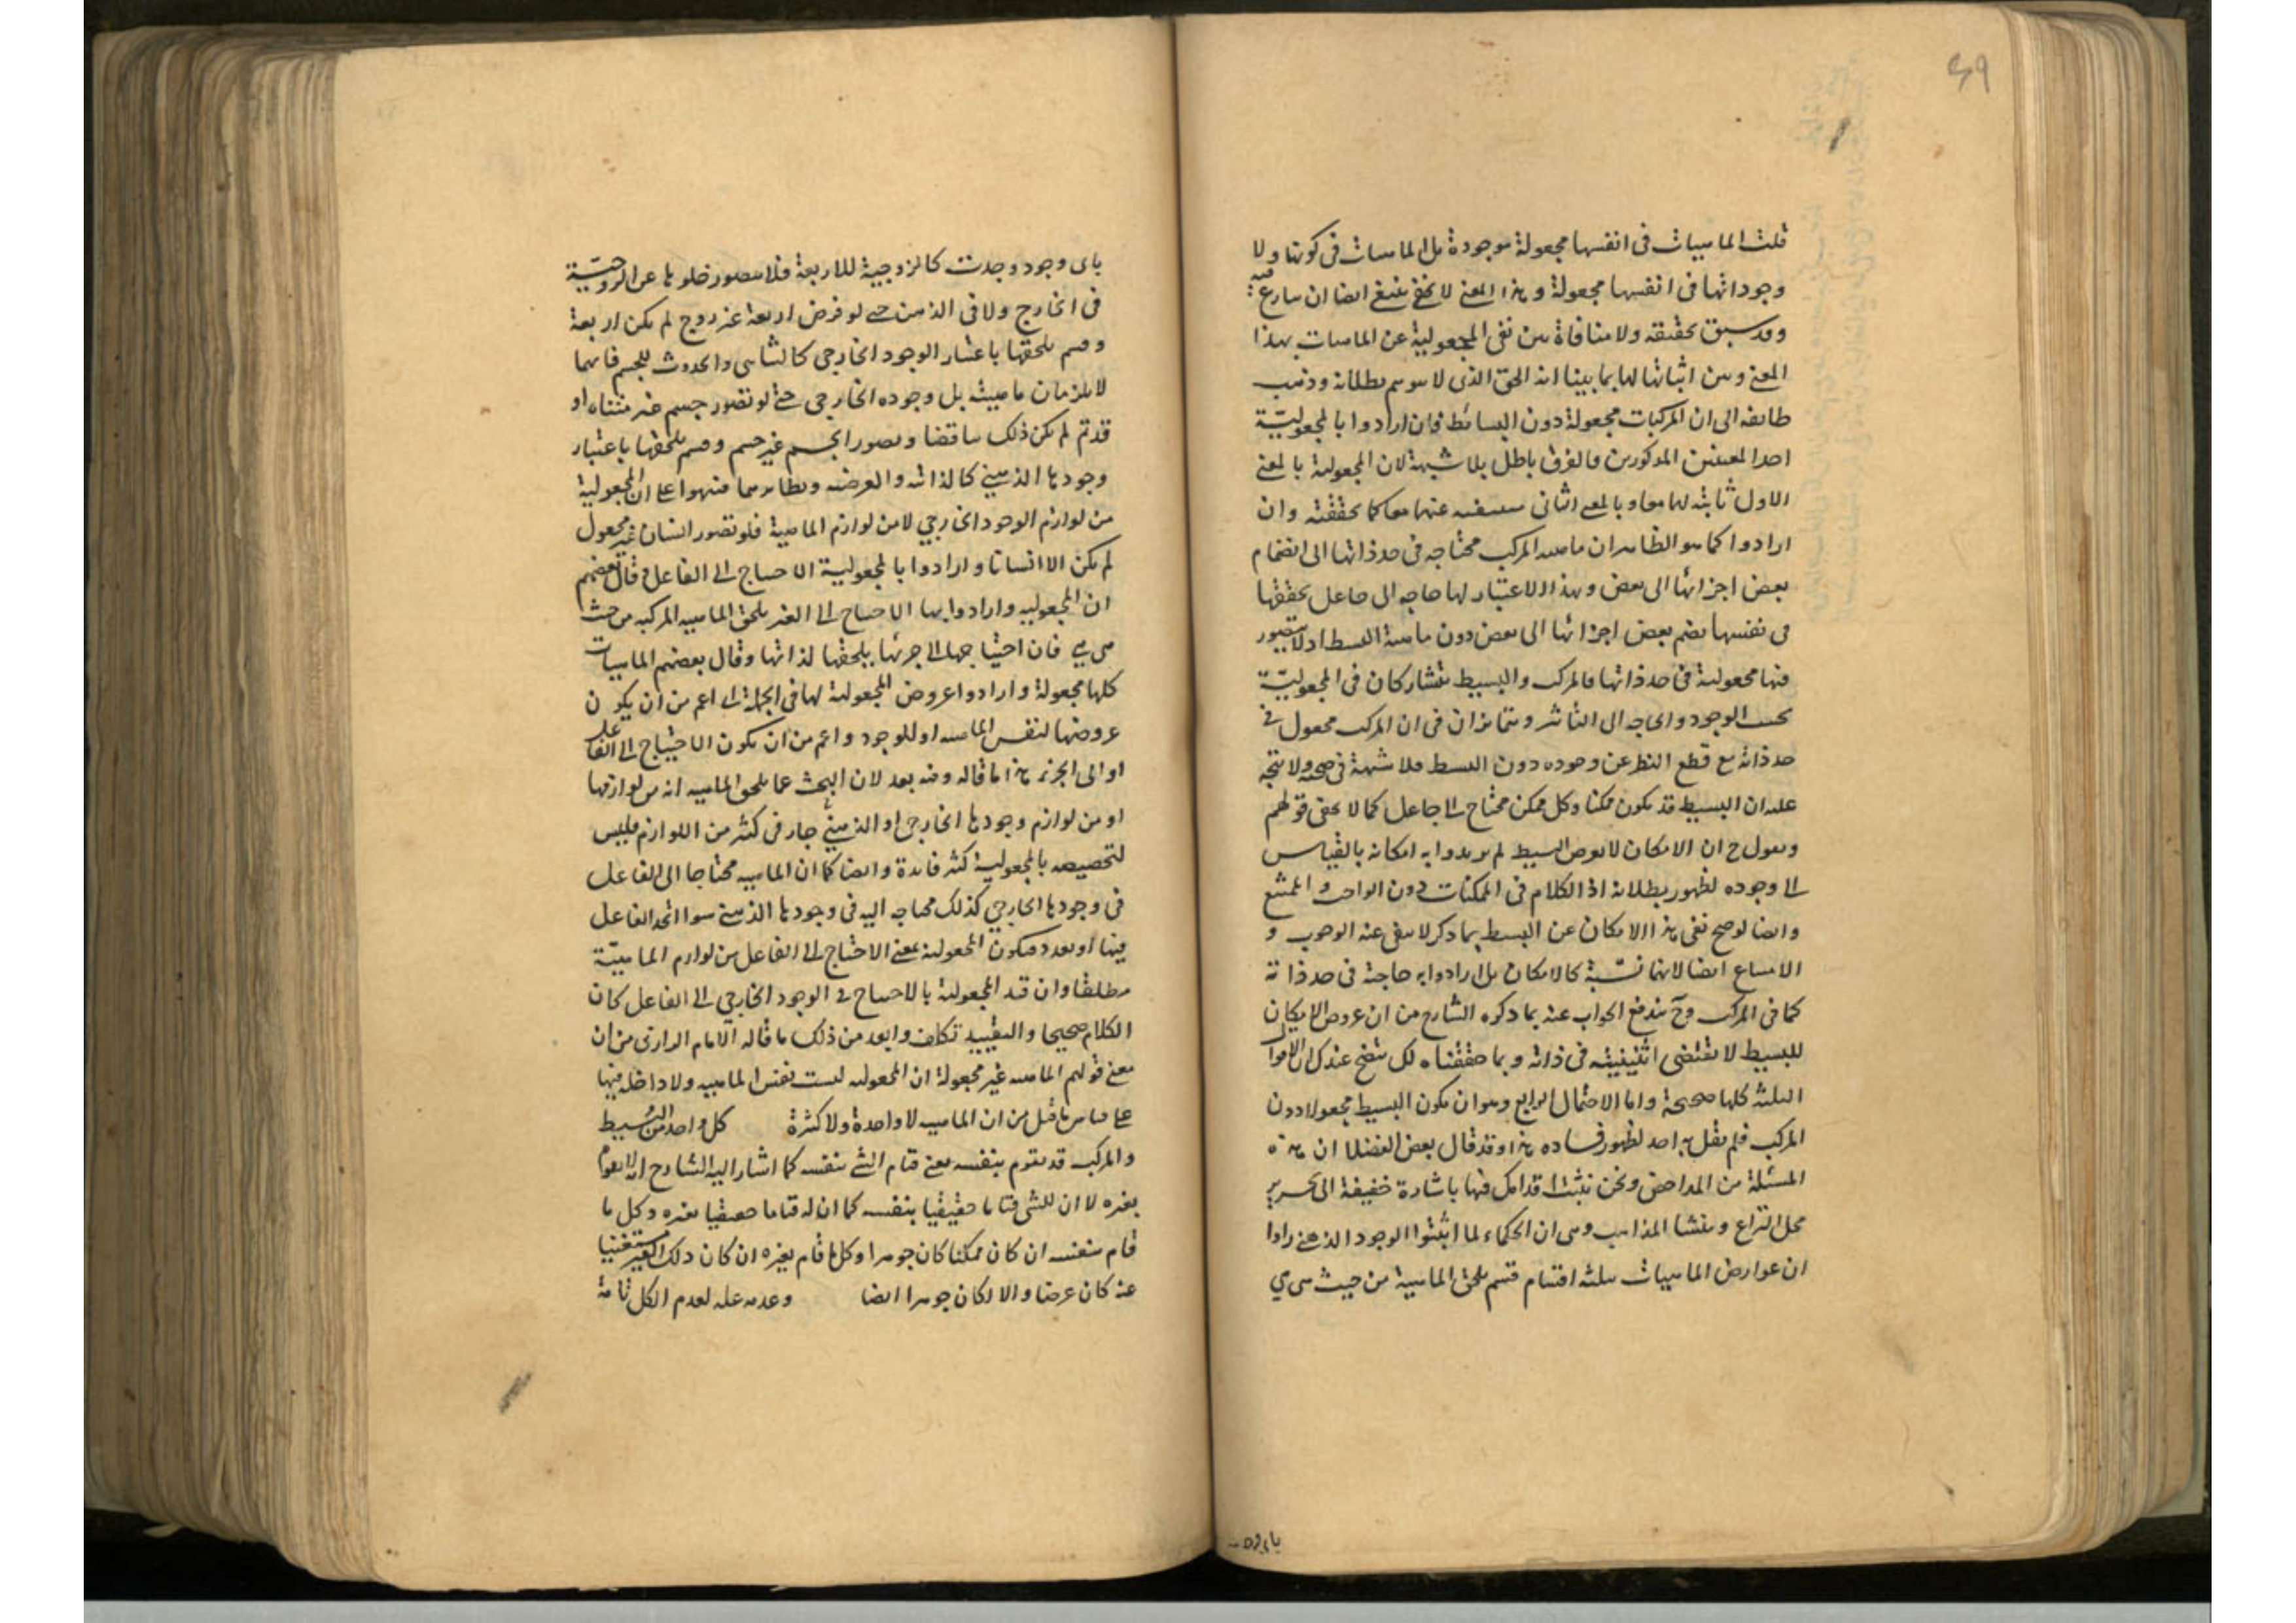 ٤٩
قلت الماهيات فى انفسها مجعولة موجودة بل الماهيات فى كونها ولا
وجوداتها فى انفسها مجعولة وهذا المعنى لا ينبغى ايضا ان ينازع فيه
وقد سبق تحقيقه ولا منافاة بين نفى المجعولية عن الماهيات بهذا
المعنى وبين اثباتها لها بما بينا انه الحق الذى لا يتوهم بطلانه وذهب
طائفة الى ان المركبات مجعولة دون البسائط فان ارادوا بالمجعوليّة
احد المعنيين المذكورين فالفرق باطل بلا شبهة لان المجعولية بالمعنى
الاول ثابتة لهما معا وبالمعنى الثانى منتفية عنهما معا كما تحققته وان
ارادوا كما هو الظاهر ان ماهية المركب محتاجة فى حد ذاتها الى انضمام
بعض اجزائها الى بعض وبهذا الاعتبار لها حاجة الى جاعل يحققها
فى نفسها بضم بعض اجزائها الى بعض دون ماهية البسيط اذ لا يتصور
فيها مجعولية فى حد ذاتها فالمركب والبسيط يتشاركان فى المجعوليّة
بحسب الوجود والحاجة الى التأثير ويتمايزان فى ان المركب مجعول فى
حد ذاته مع قطع النظر عن وجوده دون البسيط فلا شبهة فى صحته ولا يتجه
عليه ان البسيط قد يكون ممكنا وكل ممكن محتاج الى جاعل كما لا يخفى قولهم
ويقول ح ان الامكان لا يعرض البسيط لم يريدوا به امكانه بالقياس
الى وجوده لظهور بطلانه اذ الكلام فى الممكنات دون الواجب والممتنع
وايضا لو صح نفى هذا الامكان عن البسيط بما ذكر لا ينفى عنه الوجوب و
الامتناع ايضا لانهما نسبة كالامكان بل ارادوا به حاجة فى حد ذاته
كما فى المركب وح يندفع الجواب عنه بما ذكره الشارح من ان عروض الامكان
للبسيط لا يقتضى اثنينيته فى ذاته وبما حققناه لك يتضح عندك ان الاقوال
الثلثة كلها صحيحة واما الاحتمال الرابع وهو ان يكون البسيط مجعولا دون
المركب فلم يقل به احد لظهور فساده هذا وقد قال بعض الفضلا ان هذه
المسئلة من المداحض ونحن نثبت اقدامك فيها باشارة خفيفة الى تحرير
محل النزاع ومنشا المذاهب وهى ان الحكماء لما اثبتوا الوجود الذهنى راوا
ان عوارض الماهيات ثلثة اقسام قسم يلحق الماهية من حيث هى هى
باى وجود
باى وجود وجدت كالزوجية للاربعة فلا يتصور خلوها عن الزوجيّة
فى الخارج ولا فى الذهن حتى لو فرض اربعة غير زوج لم يكن اربعة
وقسم يلحقها باعتبار الوجود الخارجى كالتناهى والحدوث للجسم فانهما
لا يلزمان ماهيته بل وجوده الخارجى حتى لو تصور جسم غير متناه او
قديم لم يكن ذلك تناقضا وتصور الجسم غير جسم وقسم يلحقها باعتبار
وجودها الذهنى كالذاتية والعرضية ونظائرهما فنبهوا على ان المجعولية
من لوازم الوجود الخارجى لا من لوازم الماهية فلو تصور انسان غير مجعول
لم يكن الا انسانا وارادوا بالمجعولية الاحتياج الى الفاعل وقال بعضهم
ان المجعولية وارادوا بها الاحتياج الى الغير يلحق الماهية المركبة من حيث
هى هى فان احتياجها الى جزئها يلحقها لذاتها وقال بعضهم الماهيات
كلها مجعولة وارادوا عروض المجعولية لها فى الجملة اى اعم من ان يكون
عروضها لنفس الماهية او للوجود واعم من ان يكون الاحتياج الى الفاعل
او الى الجزء هذا ما قاله وفيه بعد لان البحث عما يلحق الماهية انه من لوازمها
او من لوازم وجودها الخارجى او الذهنى جار فى كثير من اللوازم فليس
لتخصيصه بالمجعولية كثير فايدة وايضا كما ان الماهية محتاجا الى الفاعل
فى وجودها الخارجى كذلك محتاجة اليه فى وجودها الذهنى سوا اتحد الفاعل
فيها او تعدد فيكون المجعولية بمعنى الاحتياج الى الفاعل من لوازم الماهيّة
مطلقا وان قيد المجعولية بالاحتياج فى الوجود الخارجى الى الفاعل كان
الكلام صحيحا والتقييد تكلف وابعد من ذلك ما قاله الامام الرازى من ان
معنى قولهم الماهية غير مجعولة ان المجعولية ليست نفس الماهية ولا داخلة فيها
على قياس ما قيل من ان الماهية لا واحدة ولا كثيرة كل واحد من البسيط
والمركب قد يقوم بنفسه معنى قيام الشئ بنفسه كما اشار اليه الشارح انه لا يقوم
بغيره لا ان للشئ قياما حقيقيا بنفسه كما ان له قياما حقيقيا بغيره وكل ما
قام بنفسه ان كان ممكنا كان جوهرا وكل ما قام بغيره ان كان ذلك الغير مستغنيا
عنه كان عرضا والا لكان جوهرا ايضا وعدمه علة لعدم الكل تامة